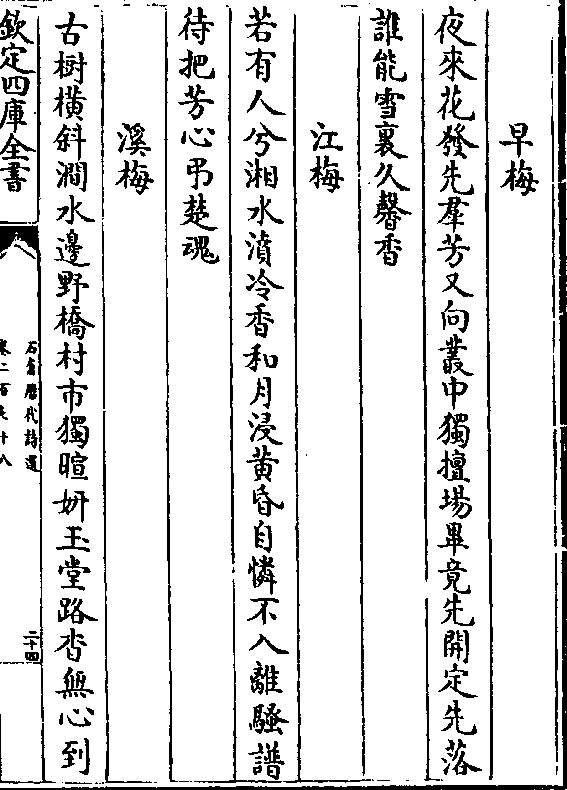 早梅
夜來花發先羣芳又向叢中獨擅場畢竟先開定先落
誰能雪裏久馨香
江梅
若有人兮湘水濆冷香和月浸黄昏自憐不入離騷譜
待把芳心弔楚魂
溪梅
古樹橫斜澗水邊野橋村市獨暄妍玉堂路杳無心到
欽定四庫全書
石倉歴代詩選
二十四